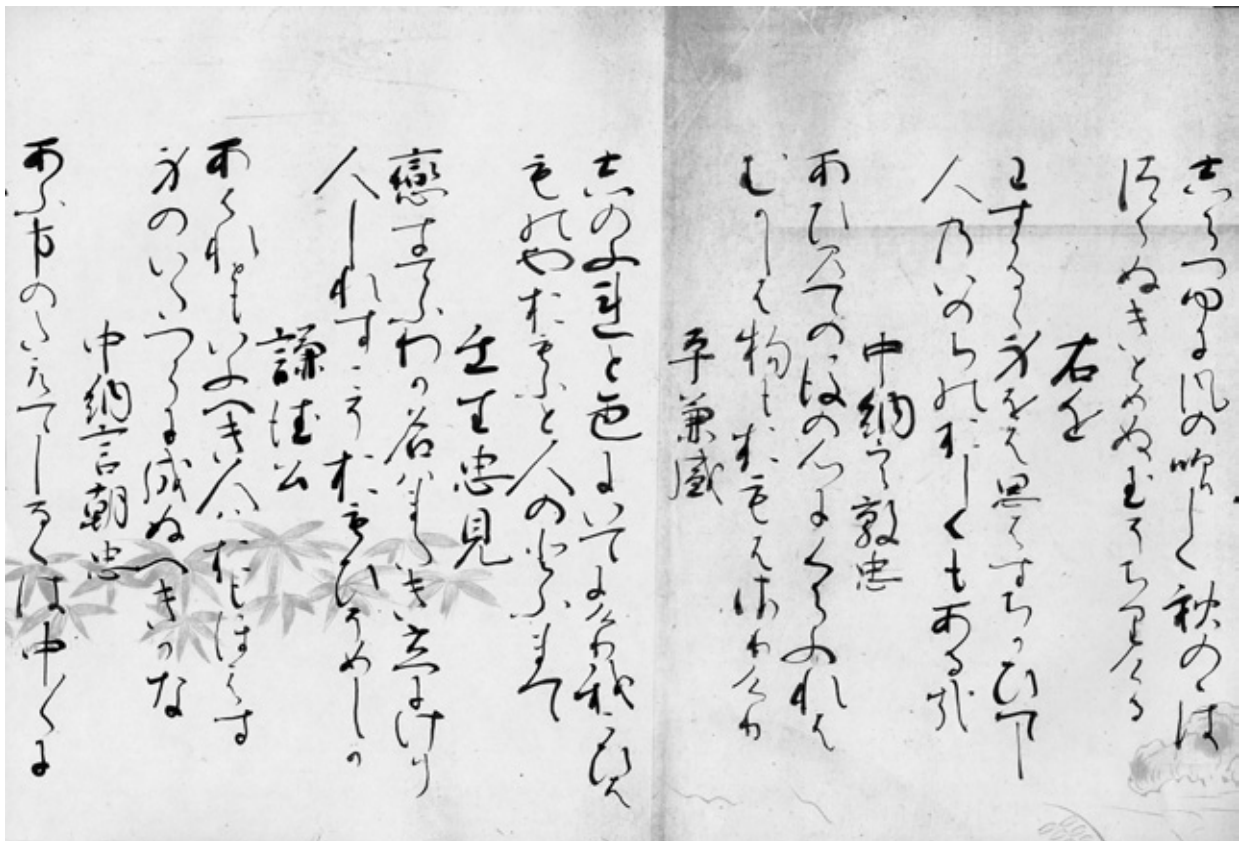 志らつゆに風の吹しく秋のゝは
つらぬきとめぬ玉そちりける
右近
わすらるゝ身をは思はすちかひてし
人乃いのちのおしくもあるかな
中納言敦忠
あひみての後の心にくらふれは
むかしは物もおもはさりけり
平兼盛
志のふれと色にいてにけり我こひは
ものやおもふと人のとふまて
壬生忠見
戀すてふわか名はまたき立にけり
人しれすこそおもひそめしか
謙徳公
あはれともいふへき人はおもほえす
身のいたつらに成ぬへきかな
中納言朝忠
あふ事のたえてしなくは中〱に